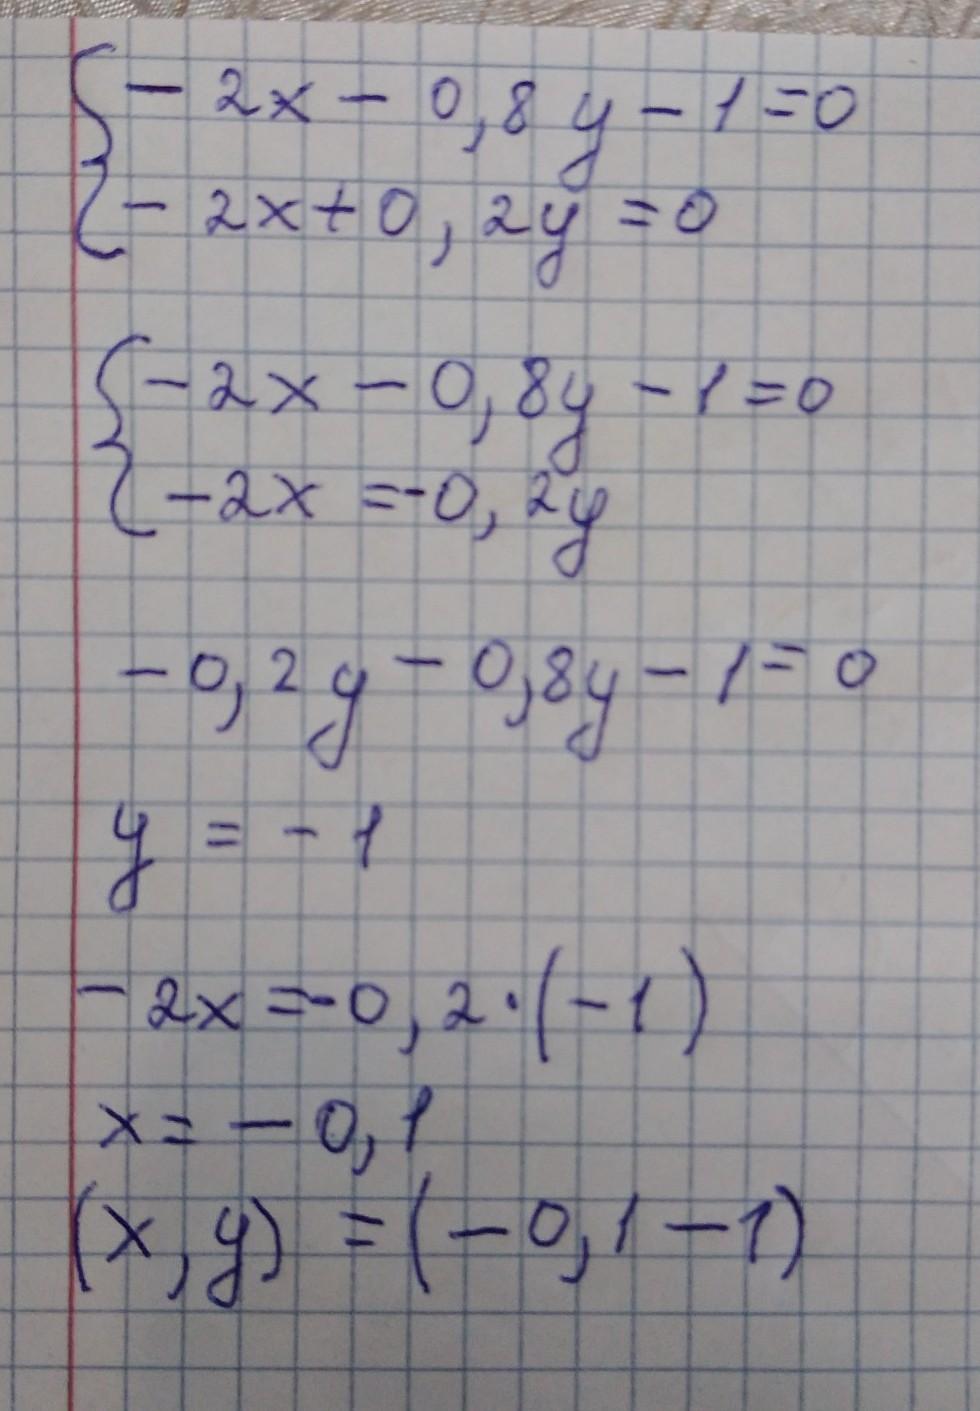 { - 2x - 0,8y - 1 = 0
- 2x + 0,2y = 0
{ - 2x - 0,8y - 1 = 0
- 2x = -0,2y
- 0,2y - 0,8y - 1 = 0
y = - 1
- 2x = -0,2·(-1)
x = - 0,1
(x,y) = (-0,1 - 1)